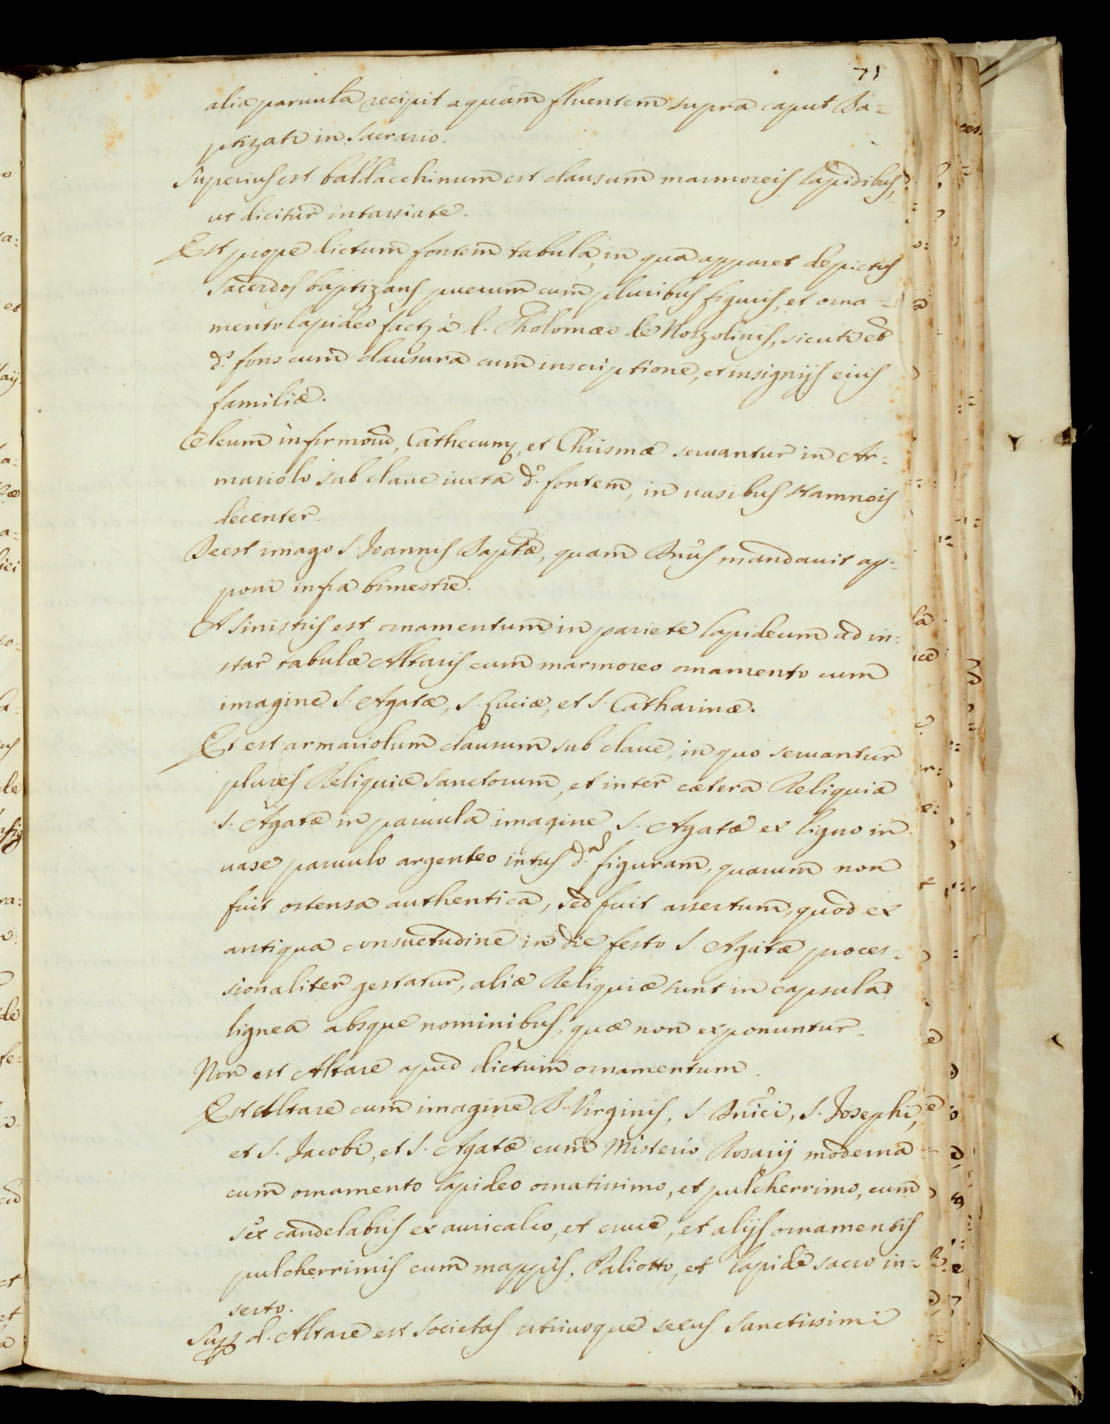 71
alia paruula recipit aquam fluentem supra caput Ba=
ptizati in Sacrario.
Superius est baldacchinum est clausum marmoreis lapidibus,
ut dicitur intarsiate.
Est prope dictum fontem tabula, in qua apparet depictus
Sacerdos baptizans puerum cum pluribus figuris, et orna=
mento lapideo factj a d. Tholomeo de Norzolinis, sicuti et
d.s fons cum clausura cum inscriptione, et insignijs eius
familiæ.
Oleum infirmorũ, Cathecum, et Chrismæ seruantur in Ar=
mariolo sub claue iuxta d.m fontem, in uasibus stamneis
decenter.
Deest imago S. Joannis Baptæ, quam mandauit ap=
poni infra bimestre.
A sinistris est ornamentum in pariete lapideum ad in=
star tabulæ Altaris cum marmoreo ornamento cum
imagine S. Agatæ, S. Luciæ, et S. Catharinæ.
Et est armariolum clausum sub claue, in quo seruantur
plures Reliquiæ Sanctorum, et inter cætera Reliquia
S. Agatæ in paruula imagine S. Agatæ ex ligno in
uase paruulo argenteo intus d.m figuram, quarum non
fuit ostensa authentica, sed fuit assertum, quod ex
antiqua consuetudine in die festo S. Agatæ proces=
sionaliter gestatur, aliæ Reliquiæ sunt in capsula
lignea absque nominibus, quæ non exponuntur.
Non est Altare apud dictum ornamentum.
Est Altare cum imagine B. Virginis, S. Dnici, S. Josephi,
et S. Jacobi, et S. Agatæ cum Misterio Rosarij moderna
cum ornamento lapideo ornatissimo, et pulcherrimo, cum
sex candelabris ex auricalco, et cruce, et alijs ornamentis
pulcherrimis cum mappis, Paliotto, et lapide sacro in=
serto.
d. Altare est societas utriusque sexus Sanctissimi